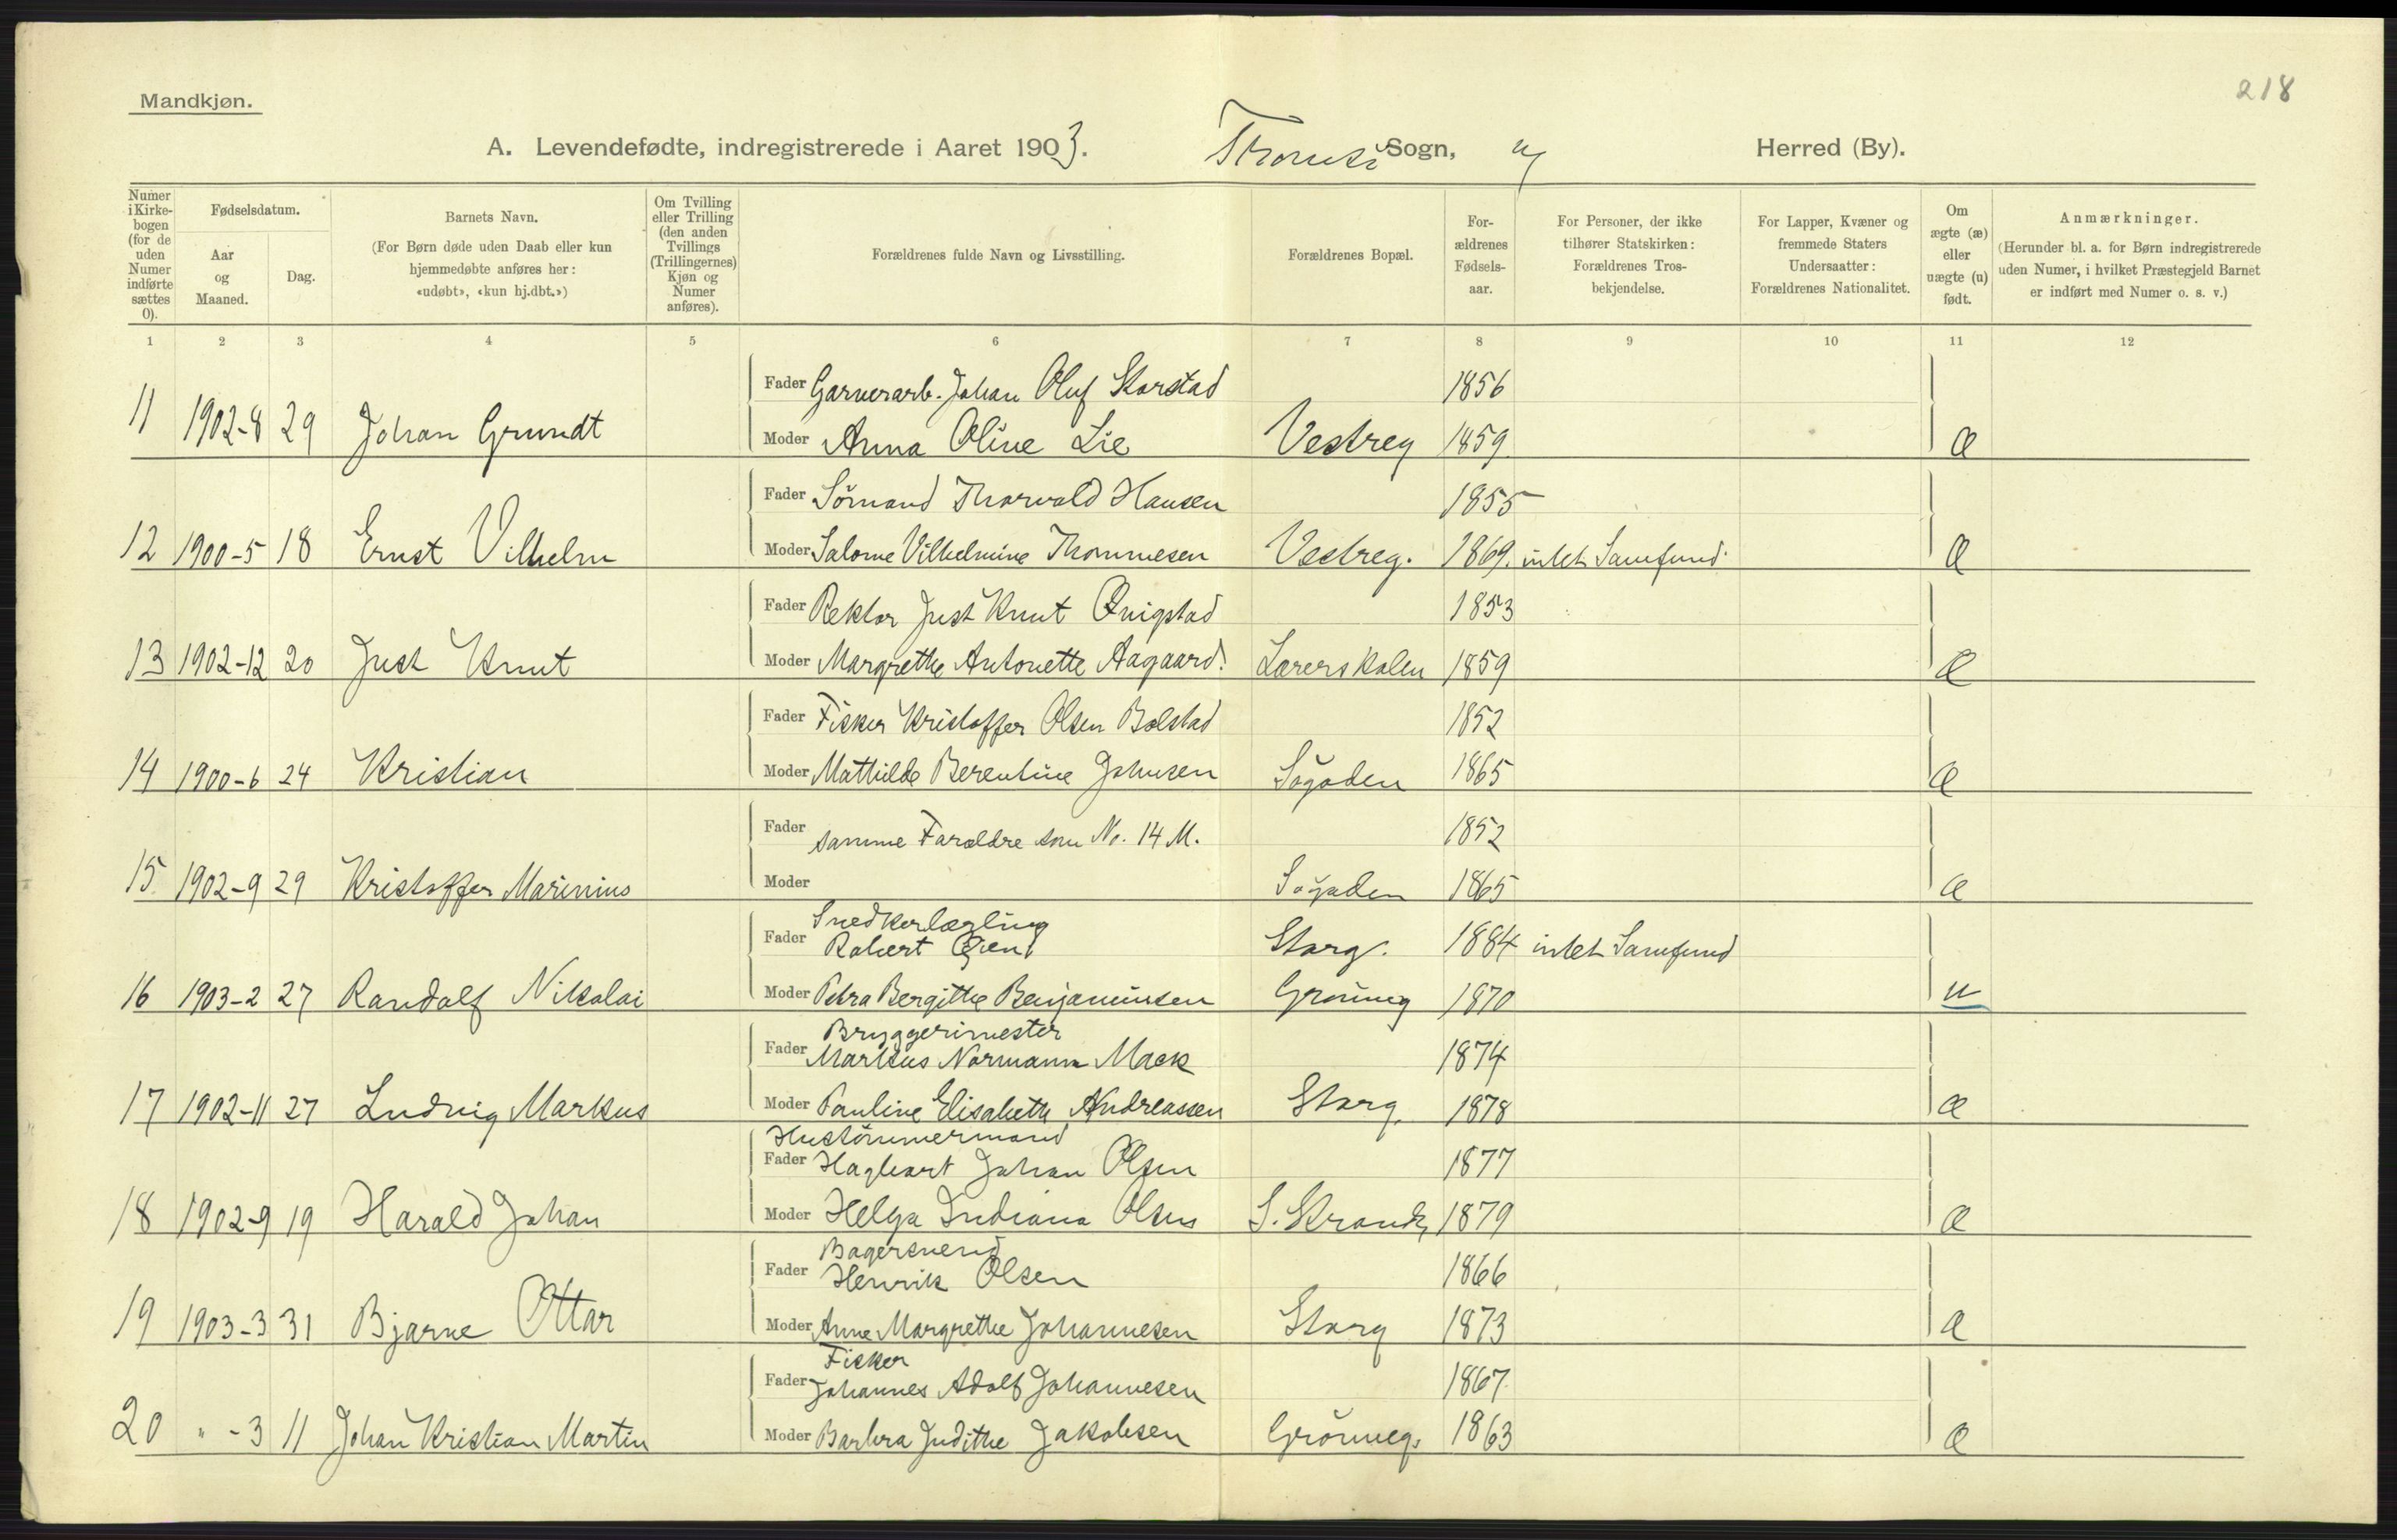 218
Mandkjøn.
A. Levendefødte, indregistrerede i Aaret 1903. Tromsö Sogn, Herred (By).
Numer i Kirkebogen (for de uden Numer indførte sættes 0).
Fødselsdatum.
Aar og Maaned.
Dag.
Barnets Navn.
(For Børn døde uden Daab eller kun hjemmedøbte anføres her: «udøbt», «kun hj.dbt.»)
Om Tvilling eller Trilling (den anden Tvillings (Trillingernes) Kjøn og Numer anføres).
Forældrenes fulde Navn og Livsstilling.
Forældrenes Bopæl.
Forældrenes Fødselsaar.
For Personer, der ikke tilhører Statskirken: Forældrenes Trosbekjendelse.
For Lapper, Kvæner og fremmede Staters Undersaatter: Forældrenes Nationalitet.
Om ægte (æ) eller uægte (u) født.
Anmærkninger.
(Herunder bl. a. for Børn indregistrerede uden Numer, i hvilket Præstegjeld Barnet er indført med Numer o. s. v.)
1 2 3 4 5 6 7 8 9 10 11 12
Fader Garverarb. Johan Oluf Skarstad 1856
11 1902-8 29 Johan Grundt Moder Anna Oline Lie Vestreg 1859 Æ
Fader Sömand Thorvald Hansen 1855
12 1900-5 18 Ernst Vilhelm Moder Salome Vilhelmine Thommesen Vestreg. 1869. intet Samfund. Æ
Fader Rektor Just Knut Qvigstad 1853
13 1902-12 20 Just Knut Moder Margrethe Antonette Aagaard. Lærerskolen 1859 Æ
Fader Fisker Kristoffer Olsen Bolstad 1852
14 1900-6 24 Kristian Moder Mathilde Berentine Johnsen Sögaden 1865 Æ
Fader samme Forældre som No. 14 M. 1852
15 1902-9 29 Kristoffer Marinius Moder Sögaden 1865 Æ
Snedkerlærling
Fader Robert Storg. 1884 intet Samfund
16 1903-2 27 Randolf Nikolai Moder Petra Bergitte Benjaminsen Grönneg 1870 u
Bryggerimester
Fader Markus Normann Mack 1874
17 1902-11 27 Ludvig Markus Moder Pauline Elisabeth Andreassen Storg. 1878 Æ
Hustömmermand
Fader Hagbart Johan Olsen 1877
18 1902-9 19 Harald Johan Moder Helga Indiana Olsen S. Strandg 1879 Æ
Bagersvend
Fader Henrik Olsen 1866
19 1903-3 31 Bjarne Ottar Moder Anne Margrethe Johannesen Storg 1873 Æ
Fisker
Fader Johannes Adolf Johannesen 1867
20 " -3 11 Johan Kristian Martin Moder Barbra Judithe Jakobsen Grönneg. 1863 Æ